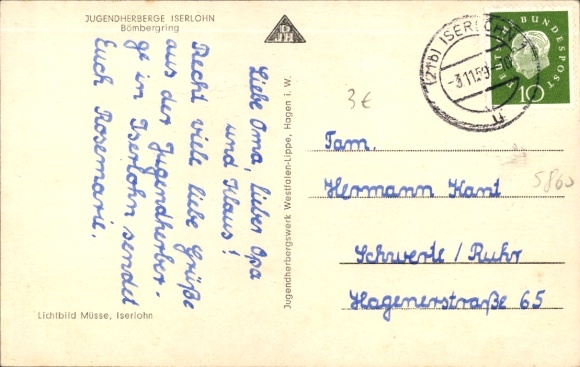 JUGENDHERBERGE ISERLOHN
Bömbergring
Liebe Oma, lieber Opa
und Klaus!
Recht viele liebe Grüße
aus der Jugendherber-
ge in Iserlohn sendet
Euch Rosemarie.
Lichtbild Müsse, Iserlohn
DJH
Jugendherbergswerk Westfalen-Lippe, Hagen i. W.
3€
(21b) ISERLOHN 1
-3.11.59
DEUTSCHE BUNDESPOST
10
Fam.
Hermann Kant
5860
Schwerte / Ruhr
Hagenerstraße 65